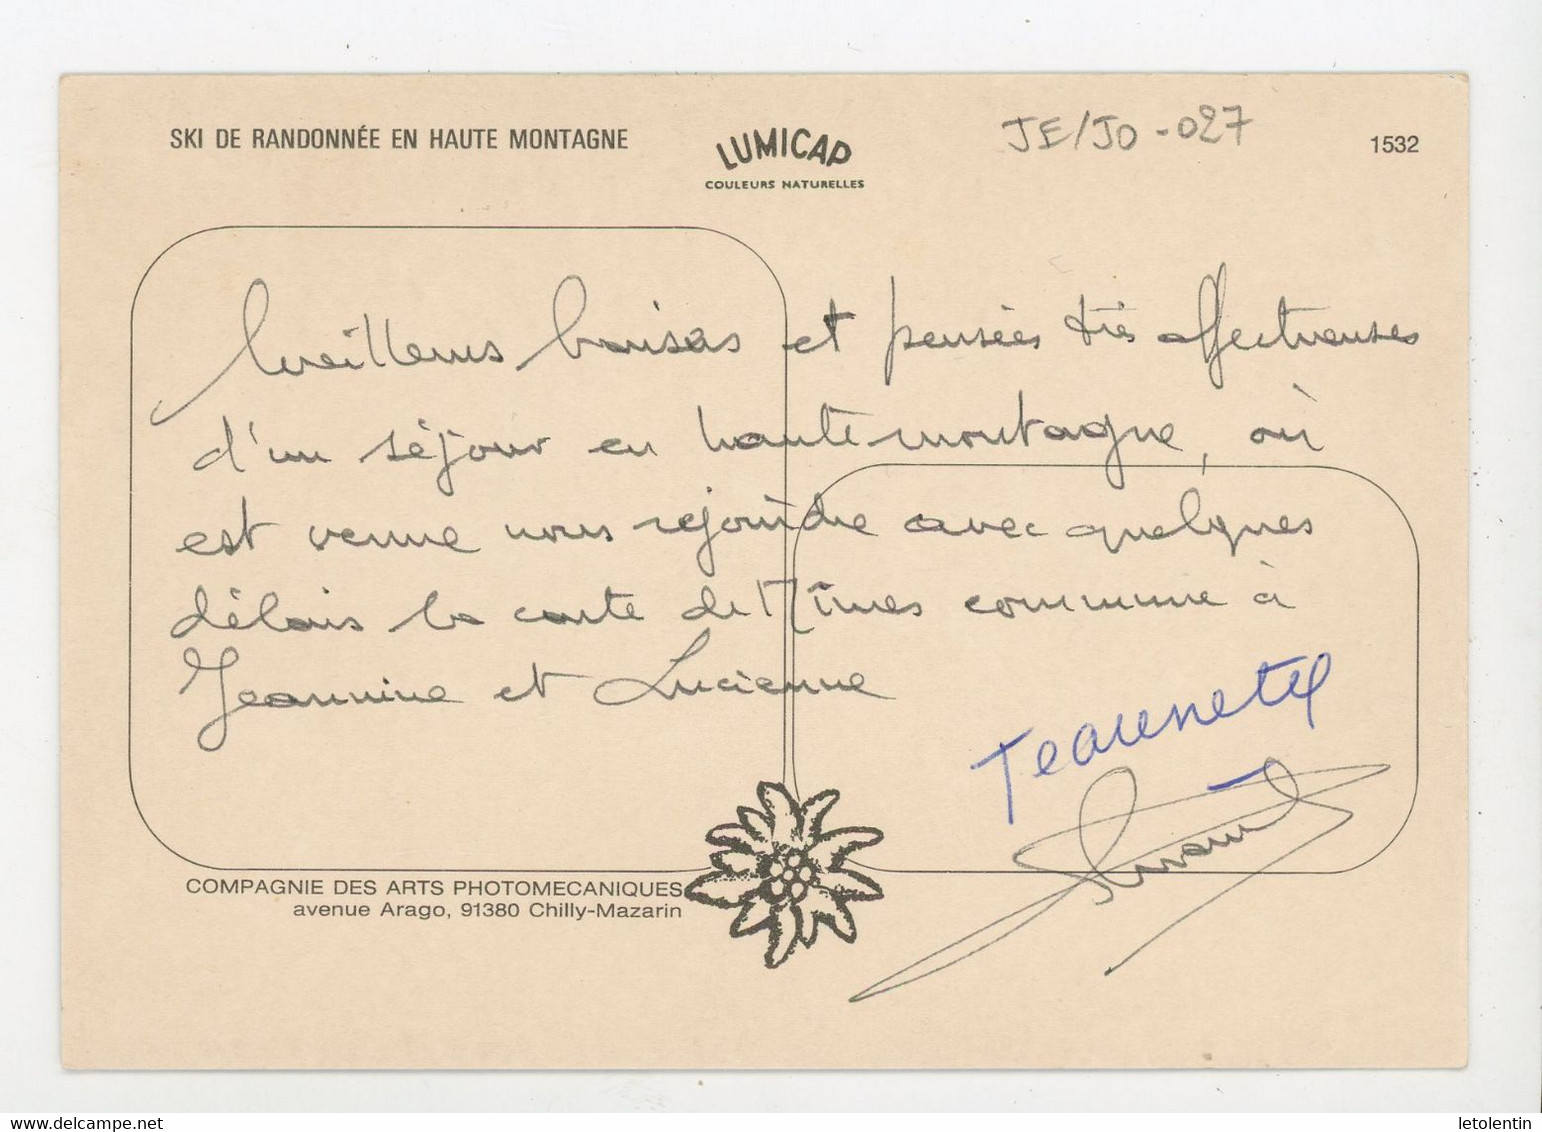 SKI DE RANDONNÉE EN HAUTE MONTAGNE
LUMICAP
COULEURS NATURELLES
JE/JO - 027
1532
Meilleurs baisers et pensées très affectueuses
d'un séjour en haute montagne, où
est venue nous rejoindre avec quelques
délais la carte de Nîmes commune à
Jeannine et Lucienne
COMPAGNIE DES ARTS PHOTOMECANIQUES
avenue Arago, 91380 Chilly-Mazarin
letolentin